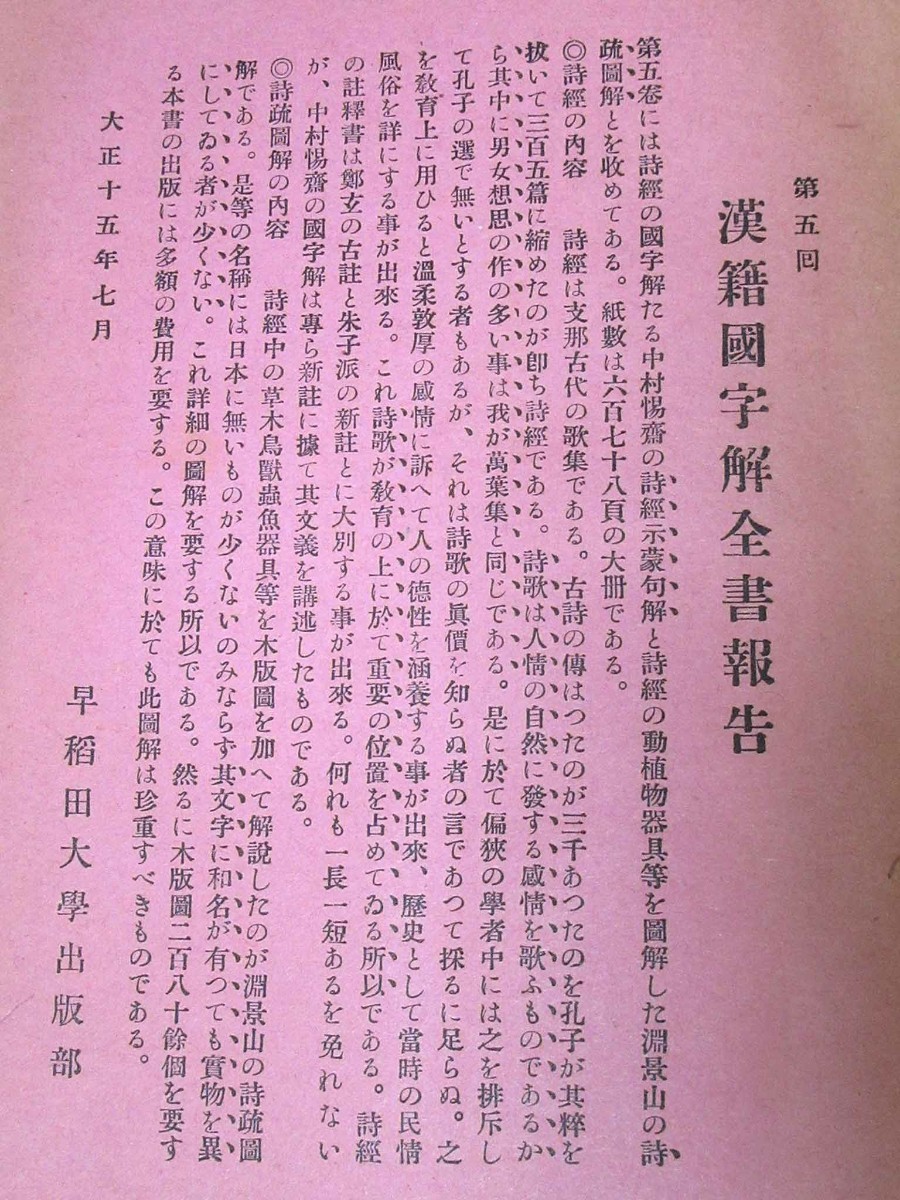 第五囘
漢籍國字解全書報告
第五卷には詩經の國字解たる中村惕齋の詩經示蒙句解と詩經の動植物器具等を圖解した淵景山の詩
疏圖解とを收めてある。紙數は六百七十八頁の大册である。
◎詩經の內容　詩經は支那古代の歌集である。古詩の傳はつたのが三千あつたのを孔子が其粹を
拔いて三百五篇に縮めたのが卽ち詩經である。詩歌は人情の自然に發する感情を歌ふものであるか
ら其中に男女想思の作の多い事は我が萬葉集と同じである。是に於て偏狹の學者中には之を排斥し
て孔子の選で無いとする者もあるが、それは詩歌の眞價を知らぬ者の言であつて採るに足らぬ。之
を敎育上に用ひると溫柔敦厚の感情に訴へて人の德性を涵養する事が出來、歷史として當時の民情
風俗を詳にする事が出來る。これ詩歌が敎育の上に於て重要の位置を占めてゐる所以である。詩經
の註釋書は鄭玄の古註と朱子派の新註とに大別する事が出來る。何れも一長一短あるを免れない
が、中村惕齋の國字解は專ら新註に據て其文義を講述したものである。
◎詩疏圖解の內容　詩經中の草木鳥獸蟲魚器具等を木版圖を加へて解說したのが淵景山の詩疏圖
解である。是等の名稱には日本に無いものが少くないのみならず其文字に和名が有つても實物を異
にしてゐる者が少くない。これ詳細の圖解を要する所以である。然るに木版圖二百八十餘個を要す
る本書の出版には多額の費用を要する。この意味に於ても此圖解は珍重すべきものである。
大正十五年七月
早稻田大學出版部